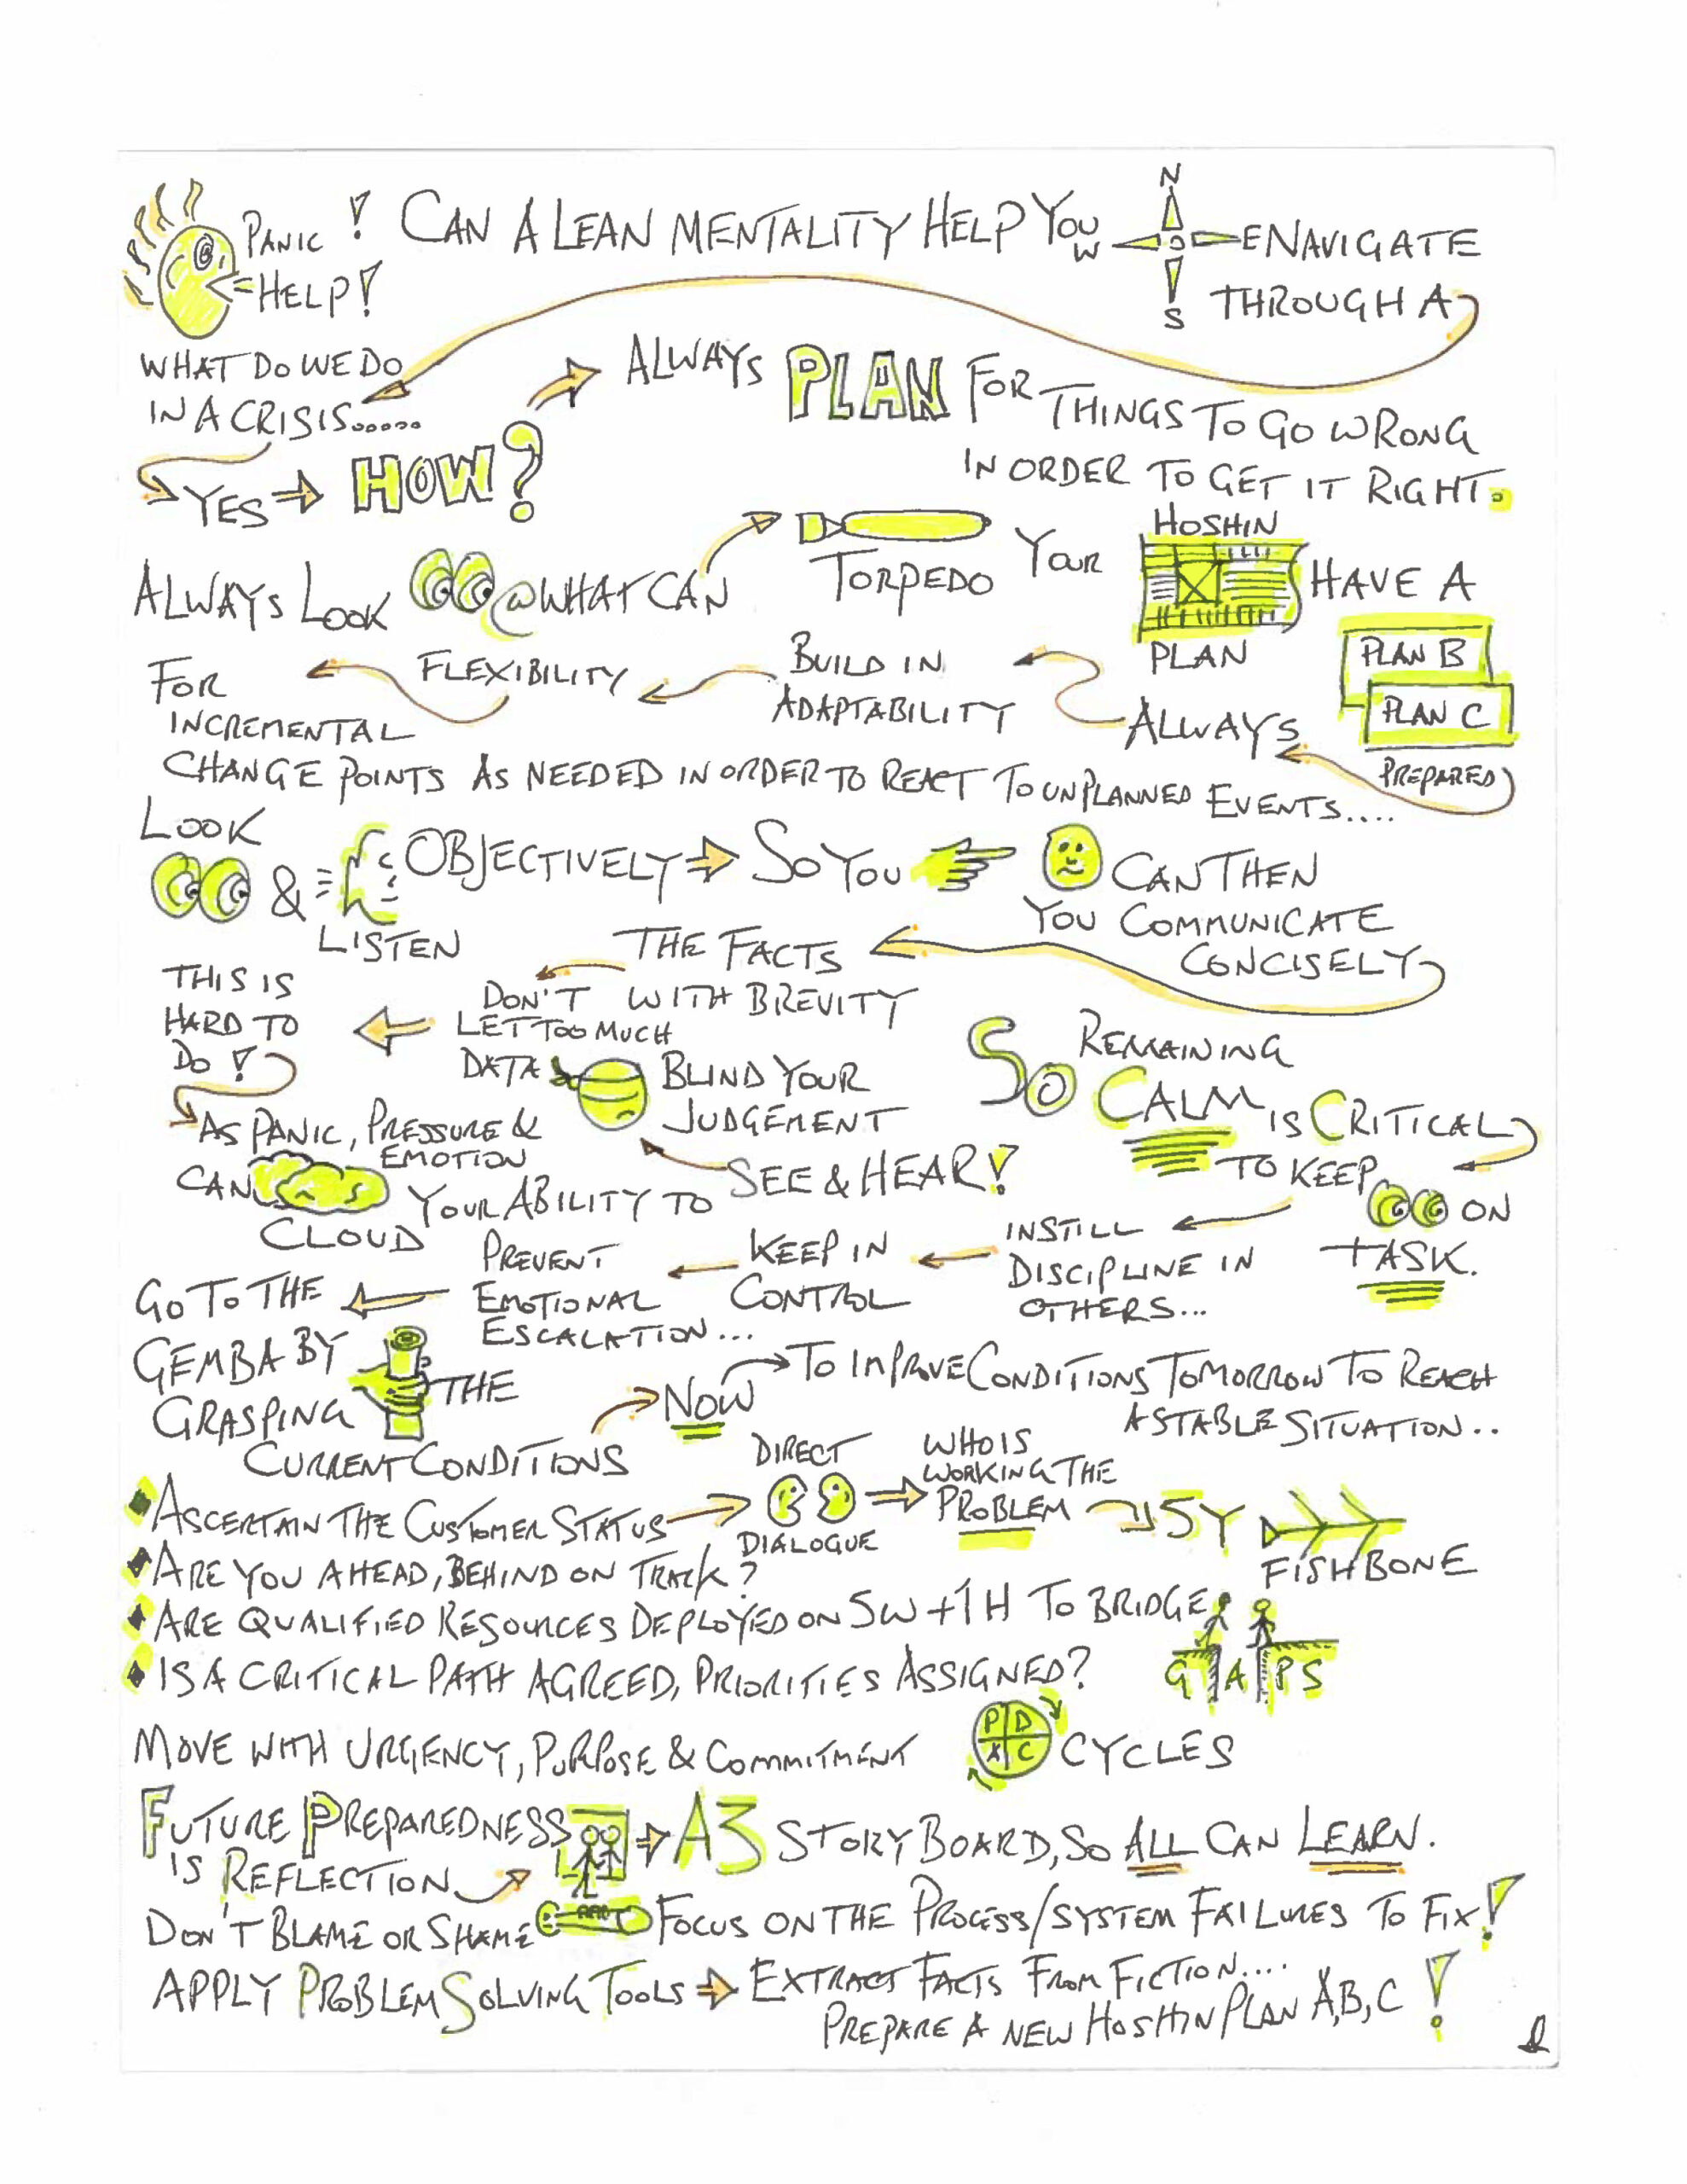 PANIC ! CAN A LEAN MENTALITY HELP YOU N W E S NAVIGATE
HELP! THROUGH A
WHAT DO WE DO
IN A CRISIS.....
YES HOW?
ALWAYS PLAN FOR THINGS TO GO WRONG
IN ORDER TO GET IT RIGHT.
ALWAYS LOOK @ WHAT CAN TORPEDO YOUR HOSHIN PLAN HAVE A
PLAN B
PLAN C
PREPARED
ALWAYS
BUILD IN
ADAPTABILITY
FLEXIBILITY
FOR
INCREMENTAL
CHANGE POINTS AS NEEDED IN ORDER TO REACT TO UNPLANNED EVENTS....
LOOK
& LISTEN OBJECTIVELY SO YOU CAN THEN
YOU COMMUNICATE
CONCISELY
THE FACTS
WITH BREVITY
DON'T
LET TOO MUCH
DATA BLIND YOUR
JUDGEMENT
THIS IS
HARD TO
DO !
AS PANIC, PRESSURE &
EMOTION
CAN CLOUD YOUR ABILITY TO SEE & HEAR!
SO REMAINING
CALM IS CRITICAL
TO KEEP ON
TASK.
INSTILL
DISCIPLINE IN
OTHERS...
KEEP IN
CONTROL
PREVENT
EMOTIONAL
ESCALATION...
GO TO THE
GEMBA BY
GRASPING THE
CURRENT CONDITIONS
NOW TO IMPROVE CONDITIONS TOMORROW TO REACH
A STABLE SITUATION..
ASCERTAIN THE CUSTOMER STATUS DIRECT DIALOGUE WHO IS
WORKING THE
PROBLEM 5Y FISHBONE
ARE YOU AHEAD, BEHIND ON TRACK?
ARE QUALIFIED RESOURCES DEPLOYED ON 5W+1H TO BRIDGE
GAPS
IS A CRITICAL PATH AGREED, PRIORITIES ASSIGNED?
MOVE WITH URGENCY, PURPOSE & COMMITMENT P D C CYCLES
FUTURE PREPAREDNESS
IS REFLECTION A3 STORY BOARD, SO ALL CAN LEARN.
DON'T BLAME OR SHAME FOCUS ON THE PROCESS/SYSTEM FAILURES TO FIX!
APPLY PROBLEM SOLVING TOOLS EXTRACT FACTS FROM FICTION....
PREPARE A NEW HOSHIN PLAN A,B,C !